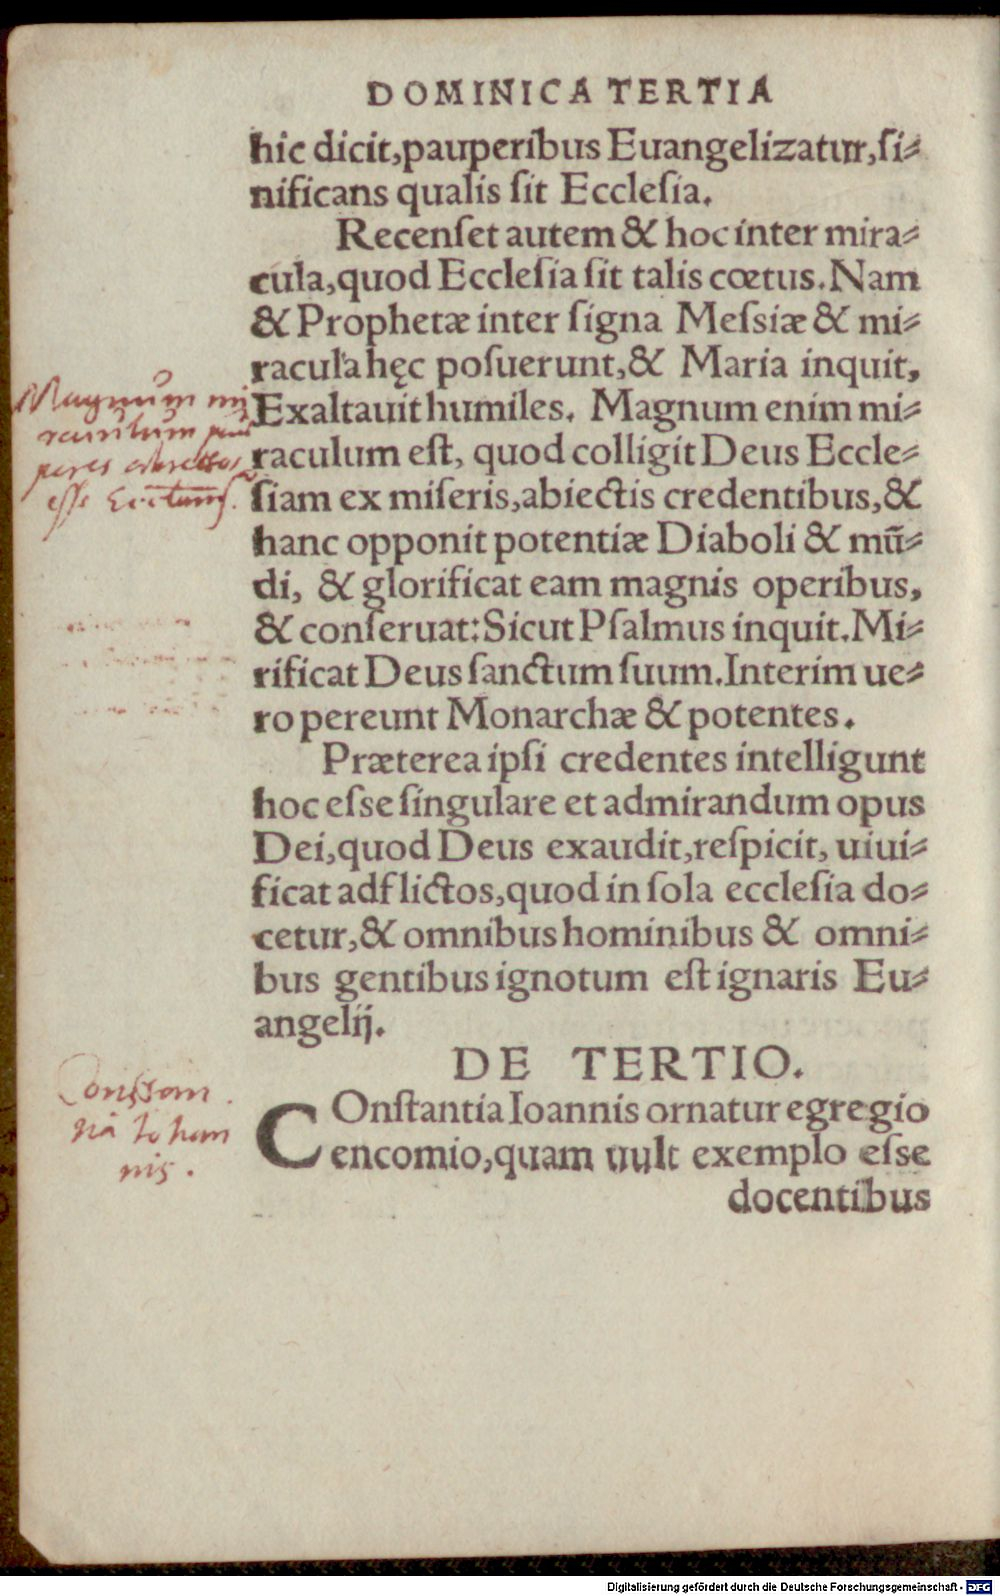 DOMINICA TERTIA
hic dicit,pauperibus Euangelizatur,ſi⸗
nificans qualis ſit Eccleſia.
Recenſet autem & hoc inter mira⸗
cula,quod Eccleſia ſit talis cœtus.Nam
& Prophetæ inter ſigna Meſsiæ & mi⸗
racula hęc poſuerunt,& Maria inquit,
Exaltauit humiles. Magnum enim mi⸗
raculum eſt, quod colligit Deus Eccle⸗
ſiam ex miſeris,abiectis credentibus,&
hanc opponit potentiæ Diaboli & mū⸗
di, & glorificat eam magnis operibus,
& conſeruat:Sicut Pſalmus inquit.Mi⸗
rificat Deus ſanctum ſuum.Interim ue⸗
ro pereunt Monarchæ & potentes.
Præterea ipſi credentes intelligunt
hoc eſse ſingulare et admirandum opus
Dei,quod Deus exaudit,reſpicit, uiui⸗
ficat adflictos,quod in ſola eccleſia do⸗
cetur,& omnibus hominibus & omni⸗
bus gentibus ignotum eſt ignaris Eu⸗
angelij.
DE TERTIO.
COnſtantia Ioannis ornatur egregio
encomio,quam uult exemplo eſse
docentibus
Magnum mi
raculum pau
peres
esse
Constan
tia Iohan
nis.
Digitalisierung gefördert durch die Deutsche Forschungsgemeinschaft - DFG